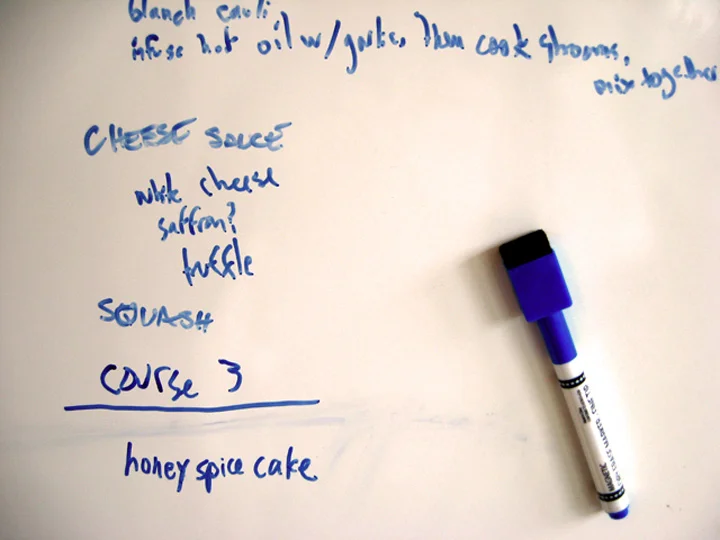 blanch cauli
infuse hot oil w/ garlic, then cook shrooms,
mix together
CHEESE SAUCE
white cheese
saffron?
truffle
SQUASH
COURSE 3
honey spice cake
MAGNETIC